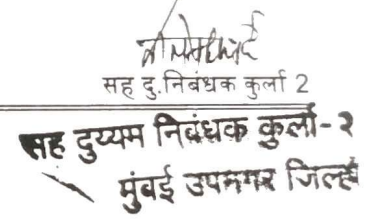 सह दु.निबंधक कुर्ला 2
सह दुय्यम निबंधक कुर्ला-२
मुंबई उपनगर जिल्हा